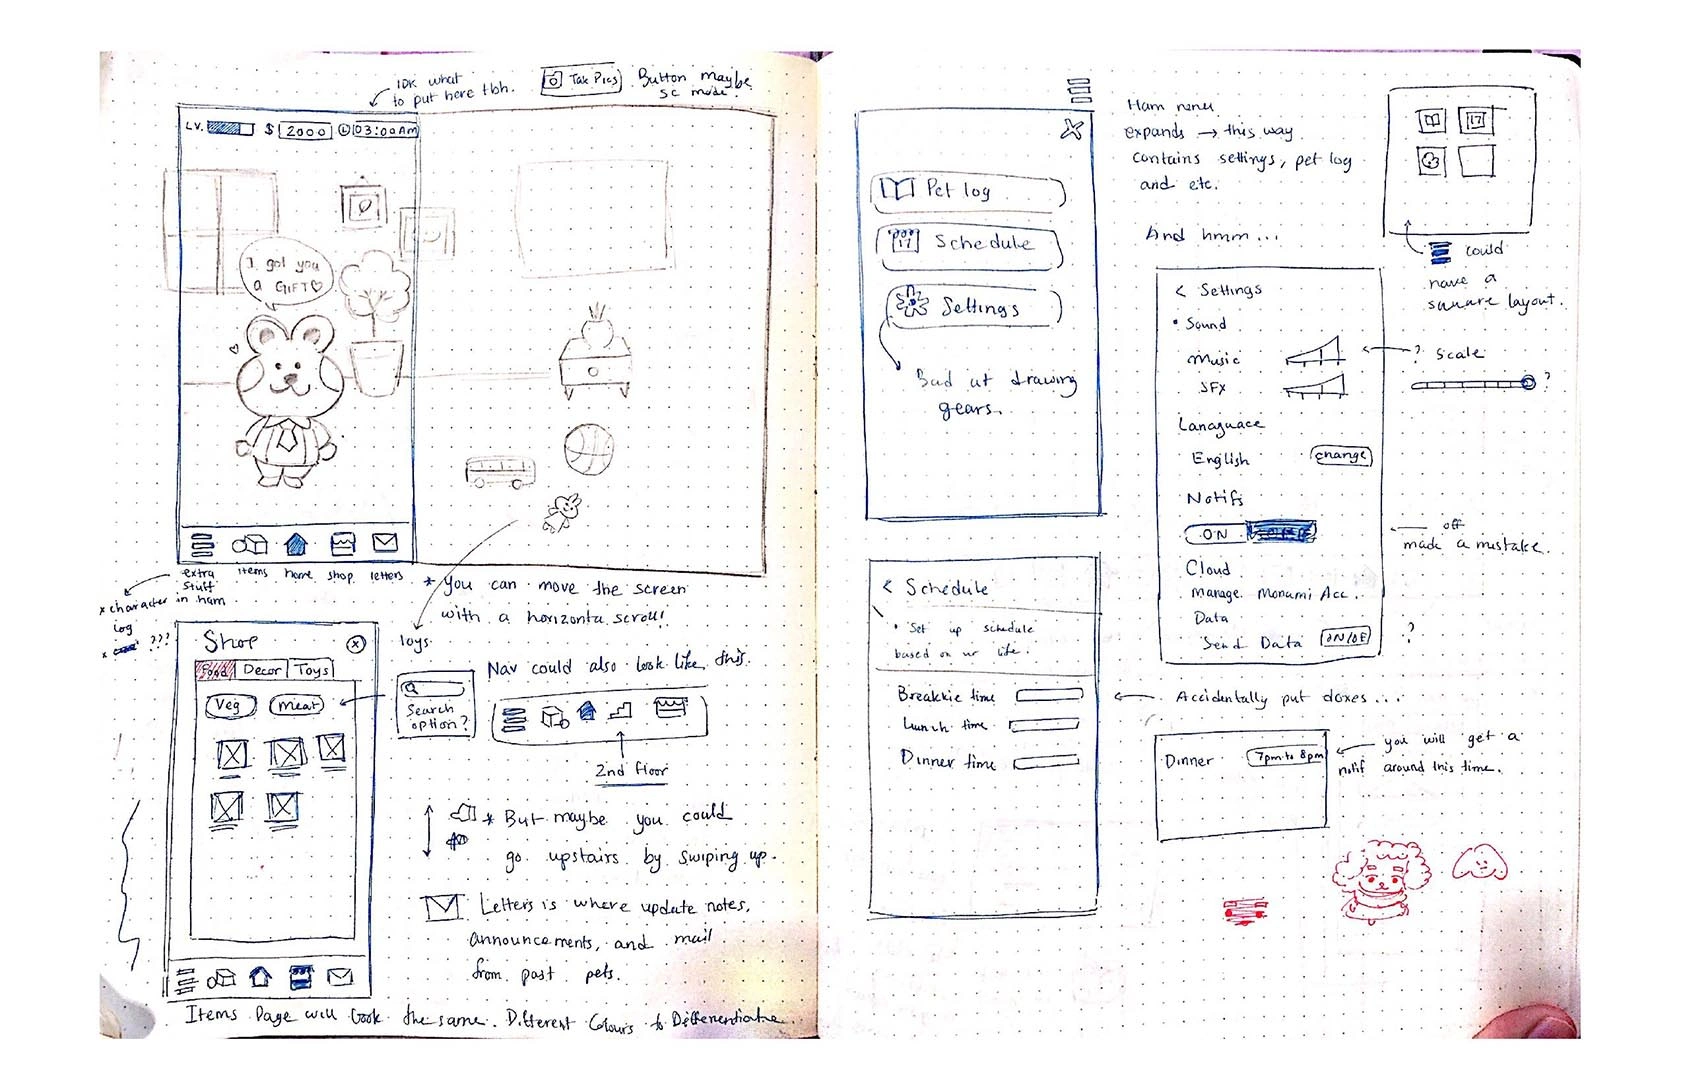 IDK what
to put here tbh.
Tak Pics
Button maybe
sc mode.
LV.
$ 2000
03:00AM
I got you
a GIFT♡
extra
stuff
items
home
shop
letters
* character in ham
log
* ???
* You can move the screen
with a horizonta scroll!
Toys
Shop
Food
Decor
Toys
Veg
meat
Search
option?
Nav could also look like this.
2nd floor
* But maybe you could
go upstairs by swiping up.
Letters is where update notes,
announcements, and mail
from past pets.
Items Page will look the same. Different Colours to Differentiate
Ham menu
expands → this way
contains settings, pet log
and etc.
And hmm...
X
Pet log
17
Schedule
Settings
Bad at drawing
gears.
17
could
have a
square layout.
< Settings
• Sound
Music
SFX
? Scale
?
Lanaguace
English
change
Notifs
ON
off
made a mistake.
Cloud
Manage Monami Acc.
Data
Send Data
ON/OF
?
< Schedule
• Set up schedule
based on ur life.
Breakkie time
Lunch time
Dinner time
Accidentally put boxes...
Dinner
7pm to 8pm
you will get a
notif around this time.